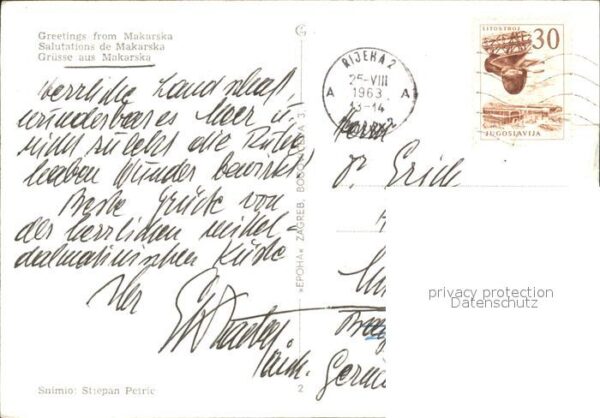 Greetings from Makarska
Salutations de Makarska
Grüsse aus Makarska
Herrliche Landschaft,
wunderbares Meer u.
nicht zuletzt die Ruhe
haben Wunder bewirkt
Beste Grüße von
der herrlichen mittel-
dalmatinischen Küste
Ihr
Snimio: Stjepan Petric
»EPOHA« ZAGREB, BOGOVIĆEVA 3.
2
RIJEKA 2
A A
25-VIII
1963
13-14
LITOSTROJ
30
JUGOSLAVIJA
Herrn
Dr. Erich
privacy protection
Datenschutz